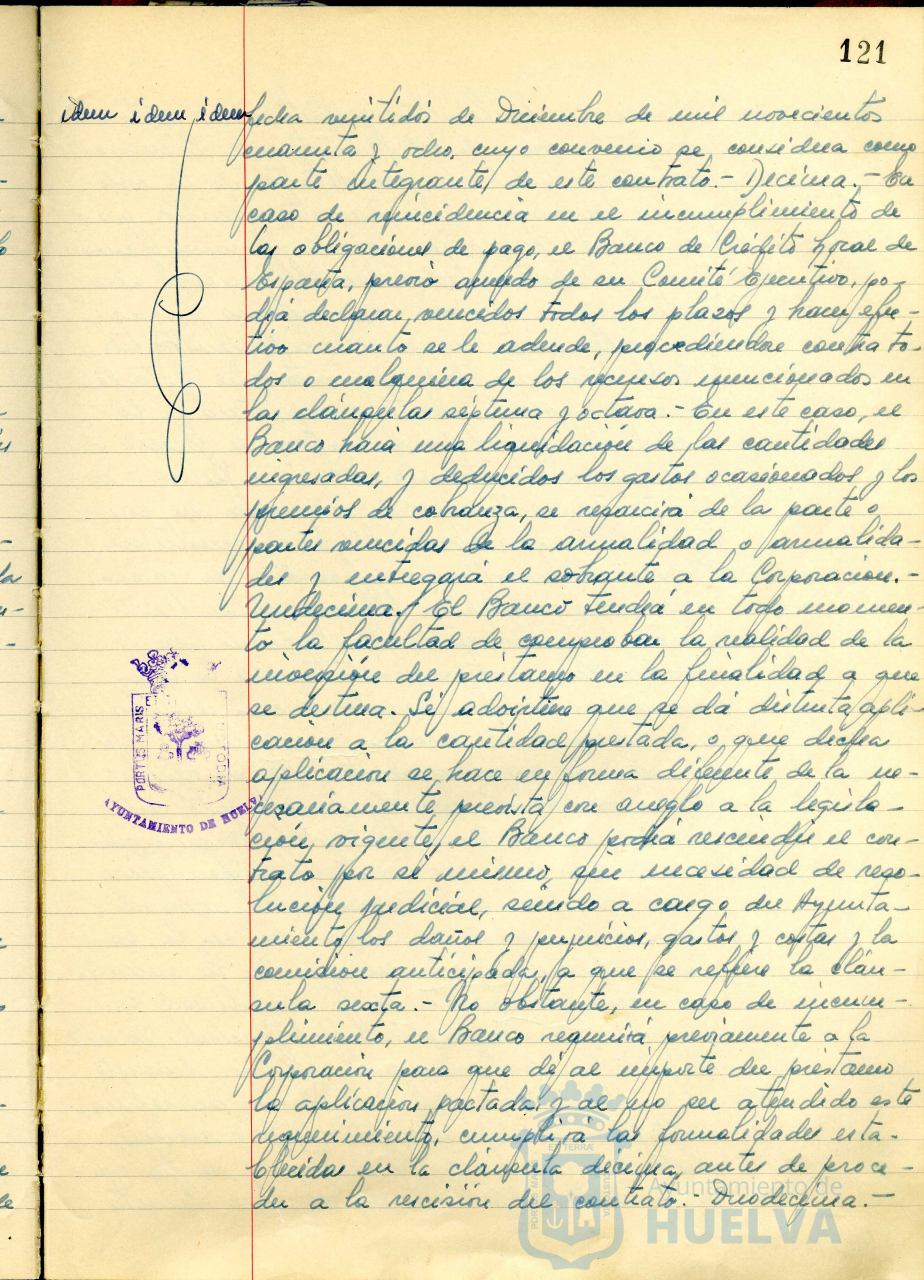 121
idem idem idem
fecha veintidós de Diciembre de mil novecientos
cuarenta y ocho, cuyo convenio se considera como
parte integrante de este contrato.- Décima.- En
caso de reincidencia en el incumplimiento de
las obligaciones de pago, el Banco de Crédito Local de
España, previo acuerdo de su Comité Ejecutivo, po-
drá declarar vencidos todos los plazos y hacer efec-
tivo cuanto se le adeude, procediendose contra to-
dos o cualquiera de los recursos mencionados en
las cláusulas séptima y octava.- En este caso, el
Banco hará una liquidación de las cantidades
ingresadas, y deducidos los gastos ocasionados y los
premios de cobranza, se resarcirá de la parte o
partes vencidas de la anualidad o anualida-
des y entregará el sobrante a la Corporación.-
Undécima.- El Banco tendrá en todo momen-
to la facultad de comprobar la realidad de la
inversión del préstamo en la finalidad a que
se destina. Si advirtiere que se dá distinta apli-
cación a la cantidad prestada, o que dicha
aplicación se hace en forma diferente de la ne-
cesariamente prevista con arreglo a la legisla-
ción vigente, el Banco podrá rescindir el con-
trato por si mismo, sin necesidad de reso-
lución judicial, siendo a cargo del Ayunta-
miento los daños y perjuicios, gastos y costas y la
comisión anticipada, a que se refiere la cláu-
sula sexta.- No obstante, en caso de incum-
plimiento, el Banco requerirá previamente a la
Corporación para que dé al importe del préstamo
la aplicación pactada, y al no ser atendido este
requerimiento, cumplirá las formalidades esta-
blecidas en la cláusula décima antes de proce-
der a la rescisión del contrato.- Duodécima.-
PORTUS MARIS
AYUNTAMIENTO DE HUELVA
Ayuntamiento de
HUELVA